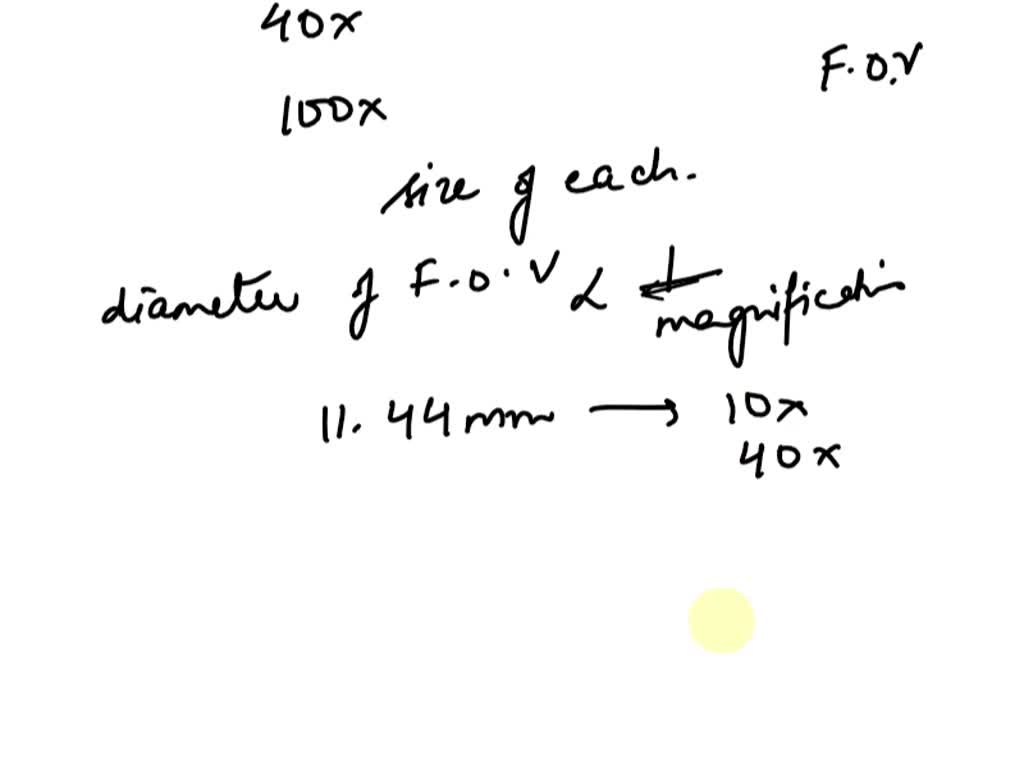 40x
F.O.V
100x
size of each.
diameter of F.O.V ∝ 1/magnification
11.44mm → 10x
40x